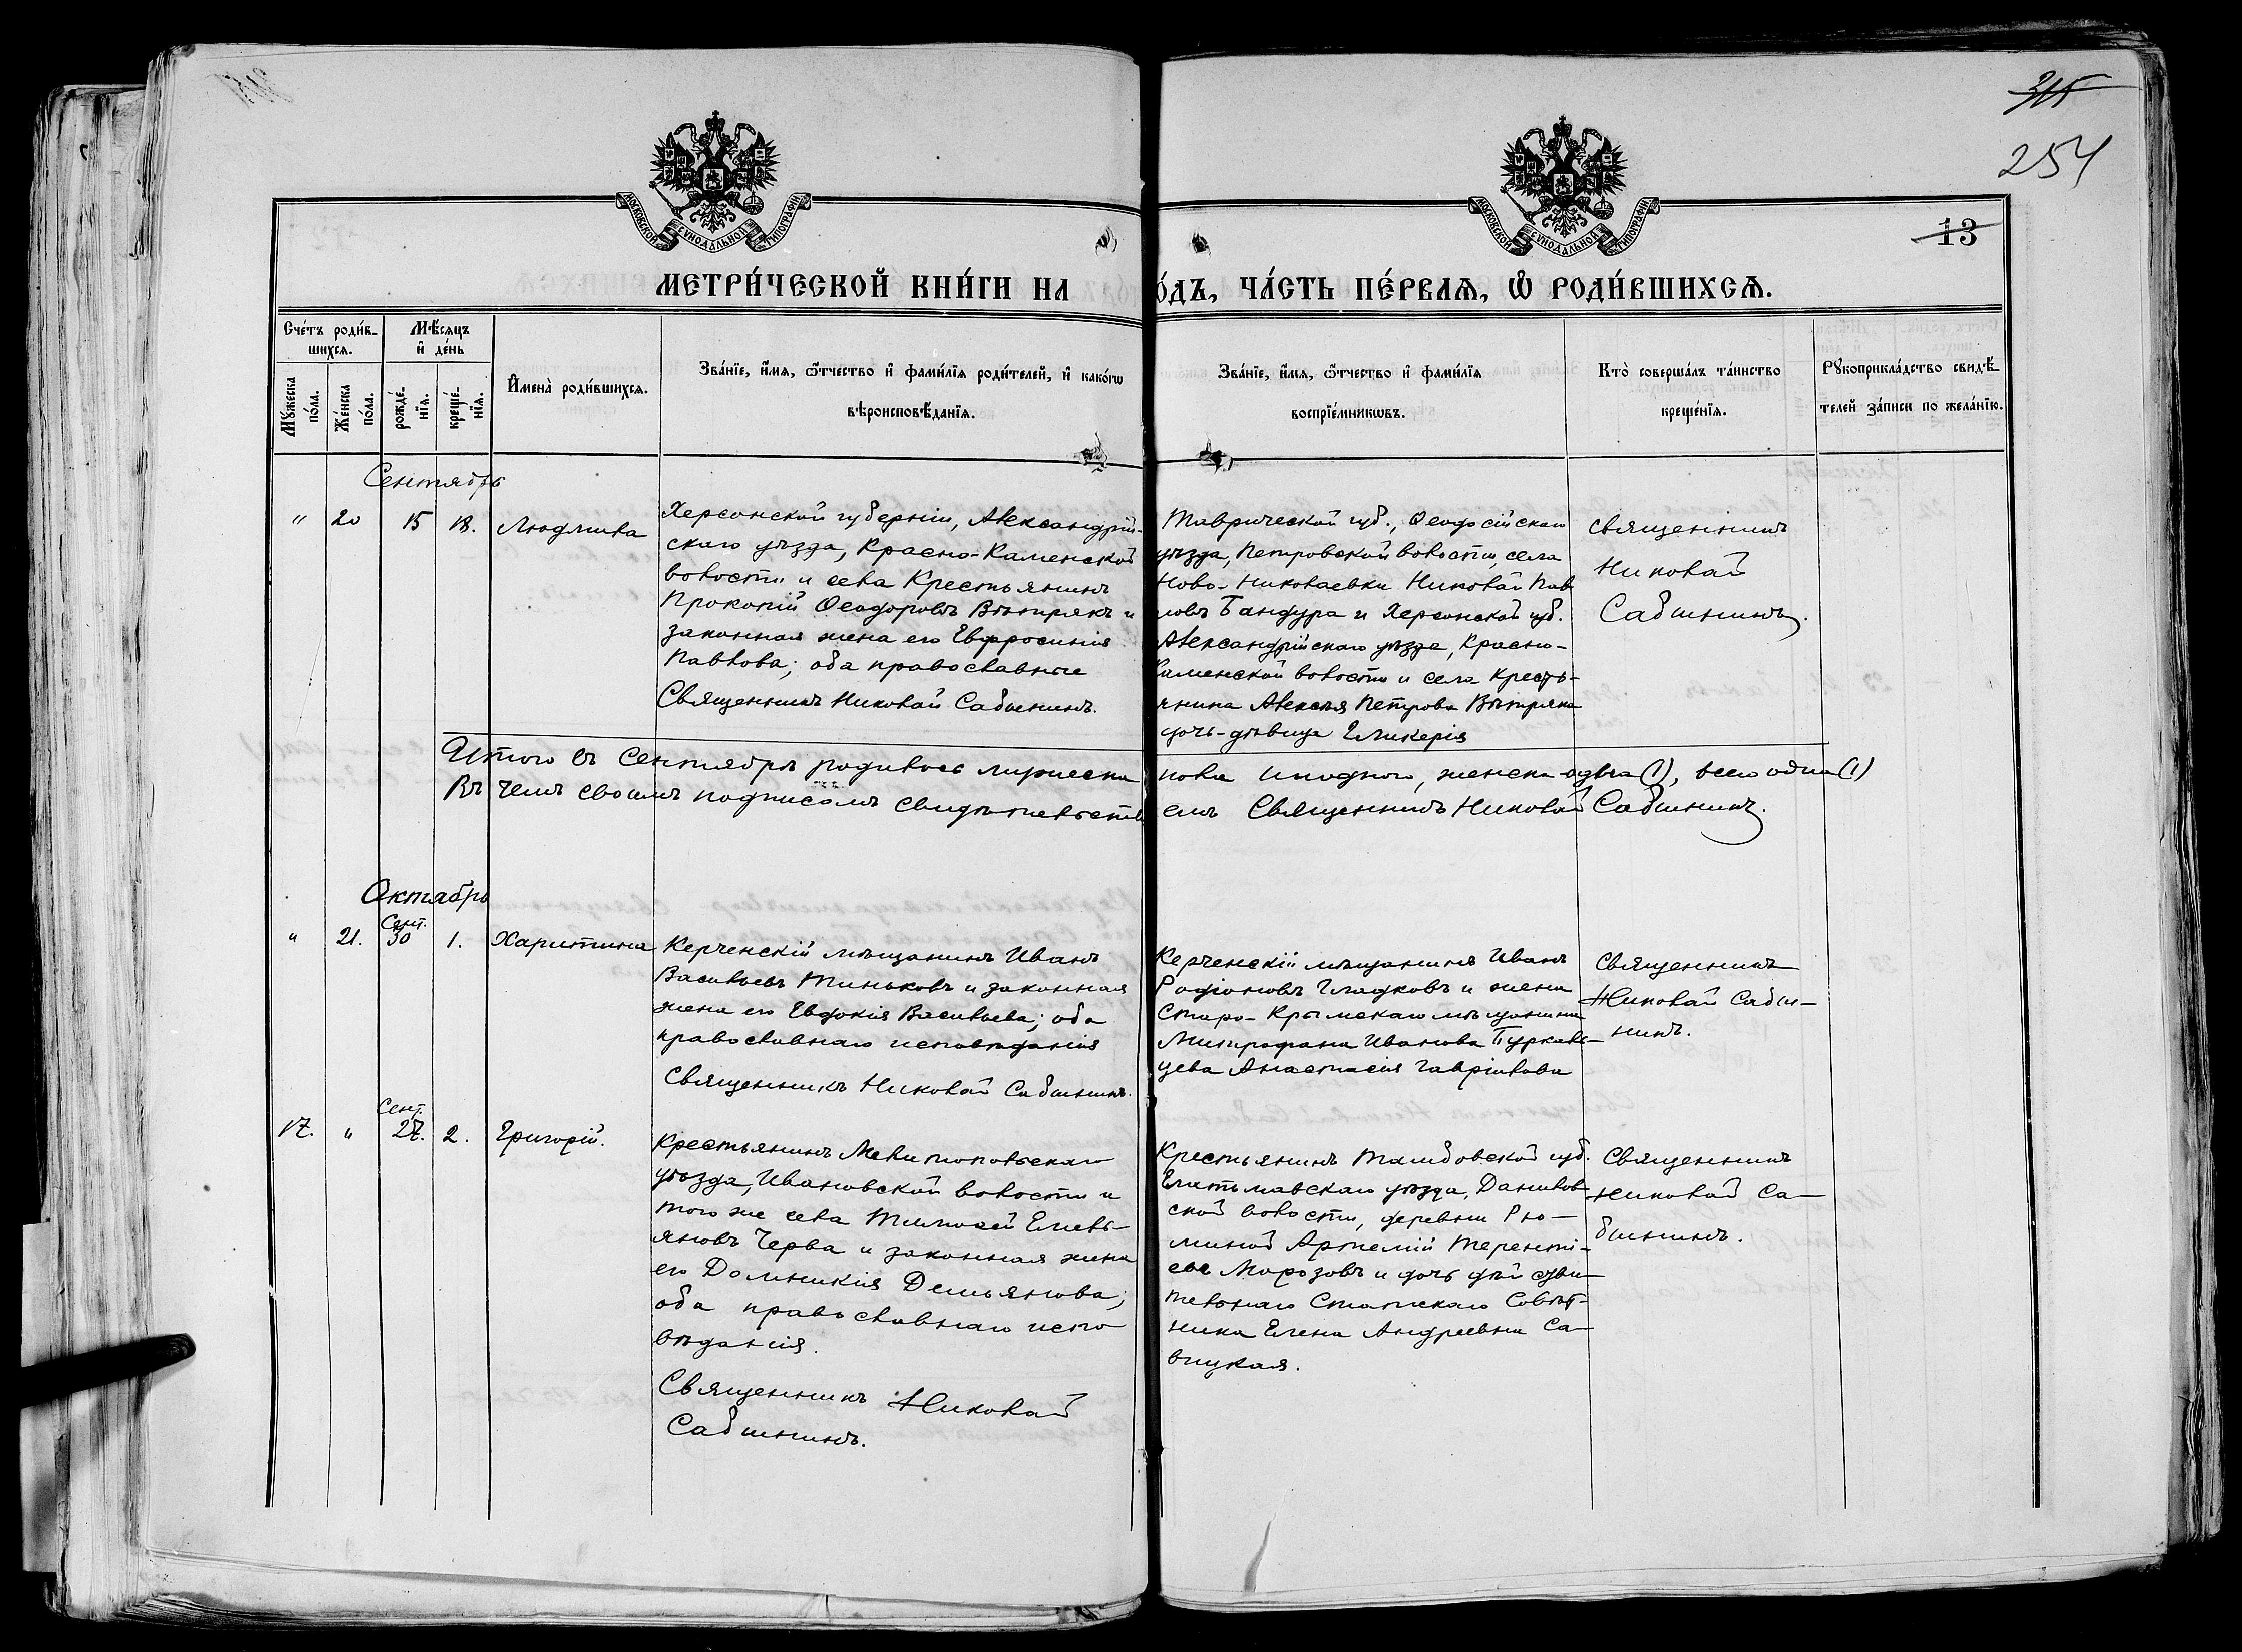 315
254
13
МОСКОВСКОЙ СѴНОДАЛЬНОЙ ТИПОГРАФІИ
МОСКОВСКОЙ СѴНОДАЛЬНОЙ ТИПОГРАФІИ
МЕТРИ́ЧЕСКОЙ КНИ́ГИ НА
О́ДЪ, ЧА́СТЬ ПЕ́РВАѦ, Ѡ҆ РОДИ́ВШИХСѦ.
Сче́тъ роди́в-
шихсѧ.
Мѣ́сѧцъ
и҆ де́нь
Мꙋ́жеска
по́ла.
Же́нска
по́ла.
рожде́-
нїѧ.
креще́-
нїѧ.
И҆мена̀ роди́вшихсѧ.
Зва́нїе, и҆́мѧ, ѻ҆́тчество и҆ фами́лїѧ роди́телей, и҆ како́гѡ
вѣроисповѣ́данїѧ.
Зва́нїе, и҆́мѧ, ѻ҆́тчество и҆ фами́лїѧ
воспрїе́мникѡвъ.
Кто̀ соверша́лъ та́инство
креще́нїѧ.
Рꙋкоприкла́дство свидѣ́-
телей за́писи по жела́нїю.
Сентябрь
" 20 15 18. Людмила
Херсонской губерніи, Александрій-
скаго уѣзда, Красно-Каменской
волости и села Крестьянинъ
Прокопій Ѳеодоровъ Вѣтрякъ и
законная жена его Евфросинія
Павлова; оба православные
Священникъ Николай Сабининъ.
Таврической губ., Ѳеодосійскаго
уѣзда, Петровской волости, села
Ново-Николаевки Николай Пав
ловъ Бандура и Херсонской губ.
Александрійскаго уѣзда, Красно-
Каменской волости и села Кресть-
янина Алексѣя Петрова Вѣтряка
дочь-дѣвица Гликерія
священникъ
Николай
Сабининъ.
Итого въ Сентябрѣ родилось мужеска
пола ни одного, женска одна (1), всего одна (1)
Въ чемъ своимъ подписомъ свидѣтельству
емъ Священникъ Николай Сабининъ.
Октябрь
" 21. Сент. 30 1. Харитина
Керченскій мѣщанинъ Иванъ
Васильевъ Тиньковъ и законная
жена его Евдокія Васильева; оба
православнаго исповѣданія
Священникъ Николай Сабининъ.
Керченскій мѣщанинъ Иванъ
Родіоновъ Гладковъ и жена
Старо-Крымскаго мѣщанина
Митрофана Иванова
Анастасія Гавріилова
Священникъ
Николай Саби-
нинъ.
17. " Сент. 27. 2. Григорій.
Крестьянинъ Мелитопольскаго
уѣзда, Ивановской волости и
того же села Тимофей Емель-
яновъ Черва и законная жена
его Домникія Демьянова;
оба православнаго испо
вѣданія.
Священникъ Николай
Сабининъ.
Крестьянинъ Тамбовской губ.
уѣзда, Данилов
ской волости, деревни Рю-
миной Артемій Терентi-
евъ Морозовъ и дочь дѣйстви-
тельнаго Статскаго Совѣт-
ника Елена Андреевна Са-
вицкая.
Священникъ
Николай Са-
бининъ.